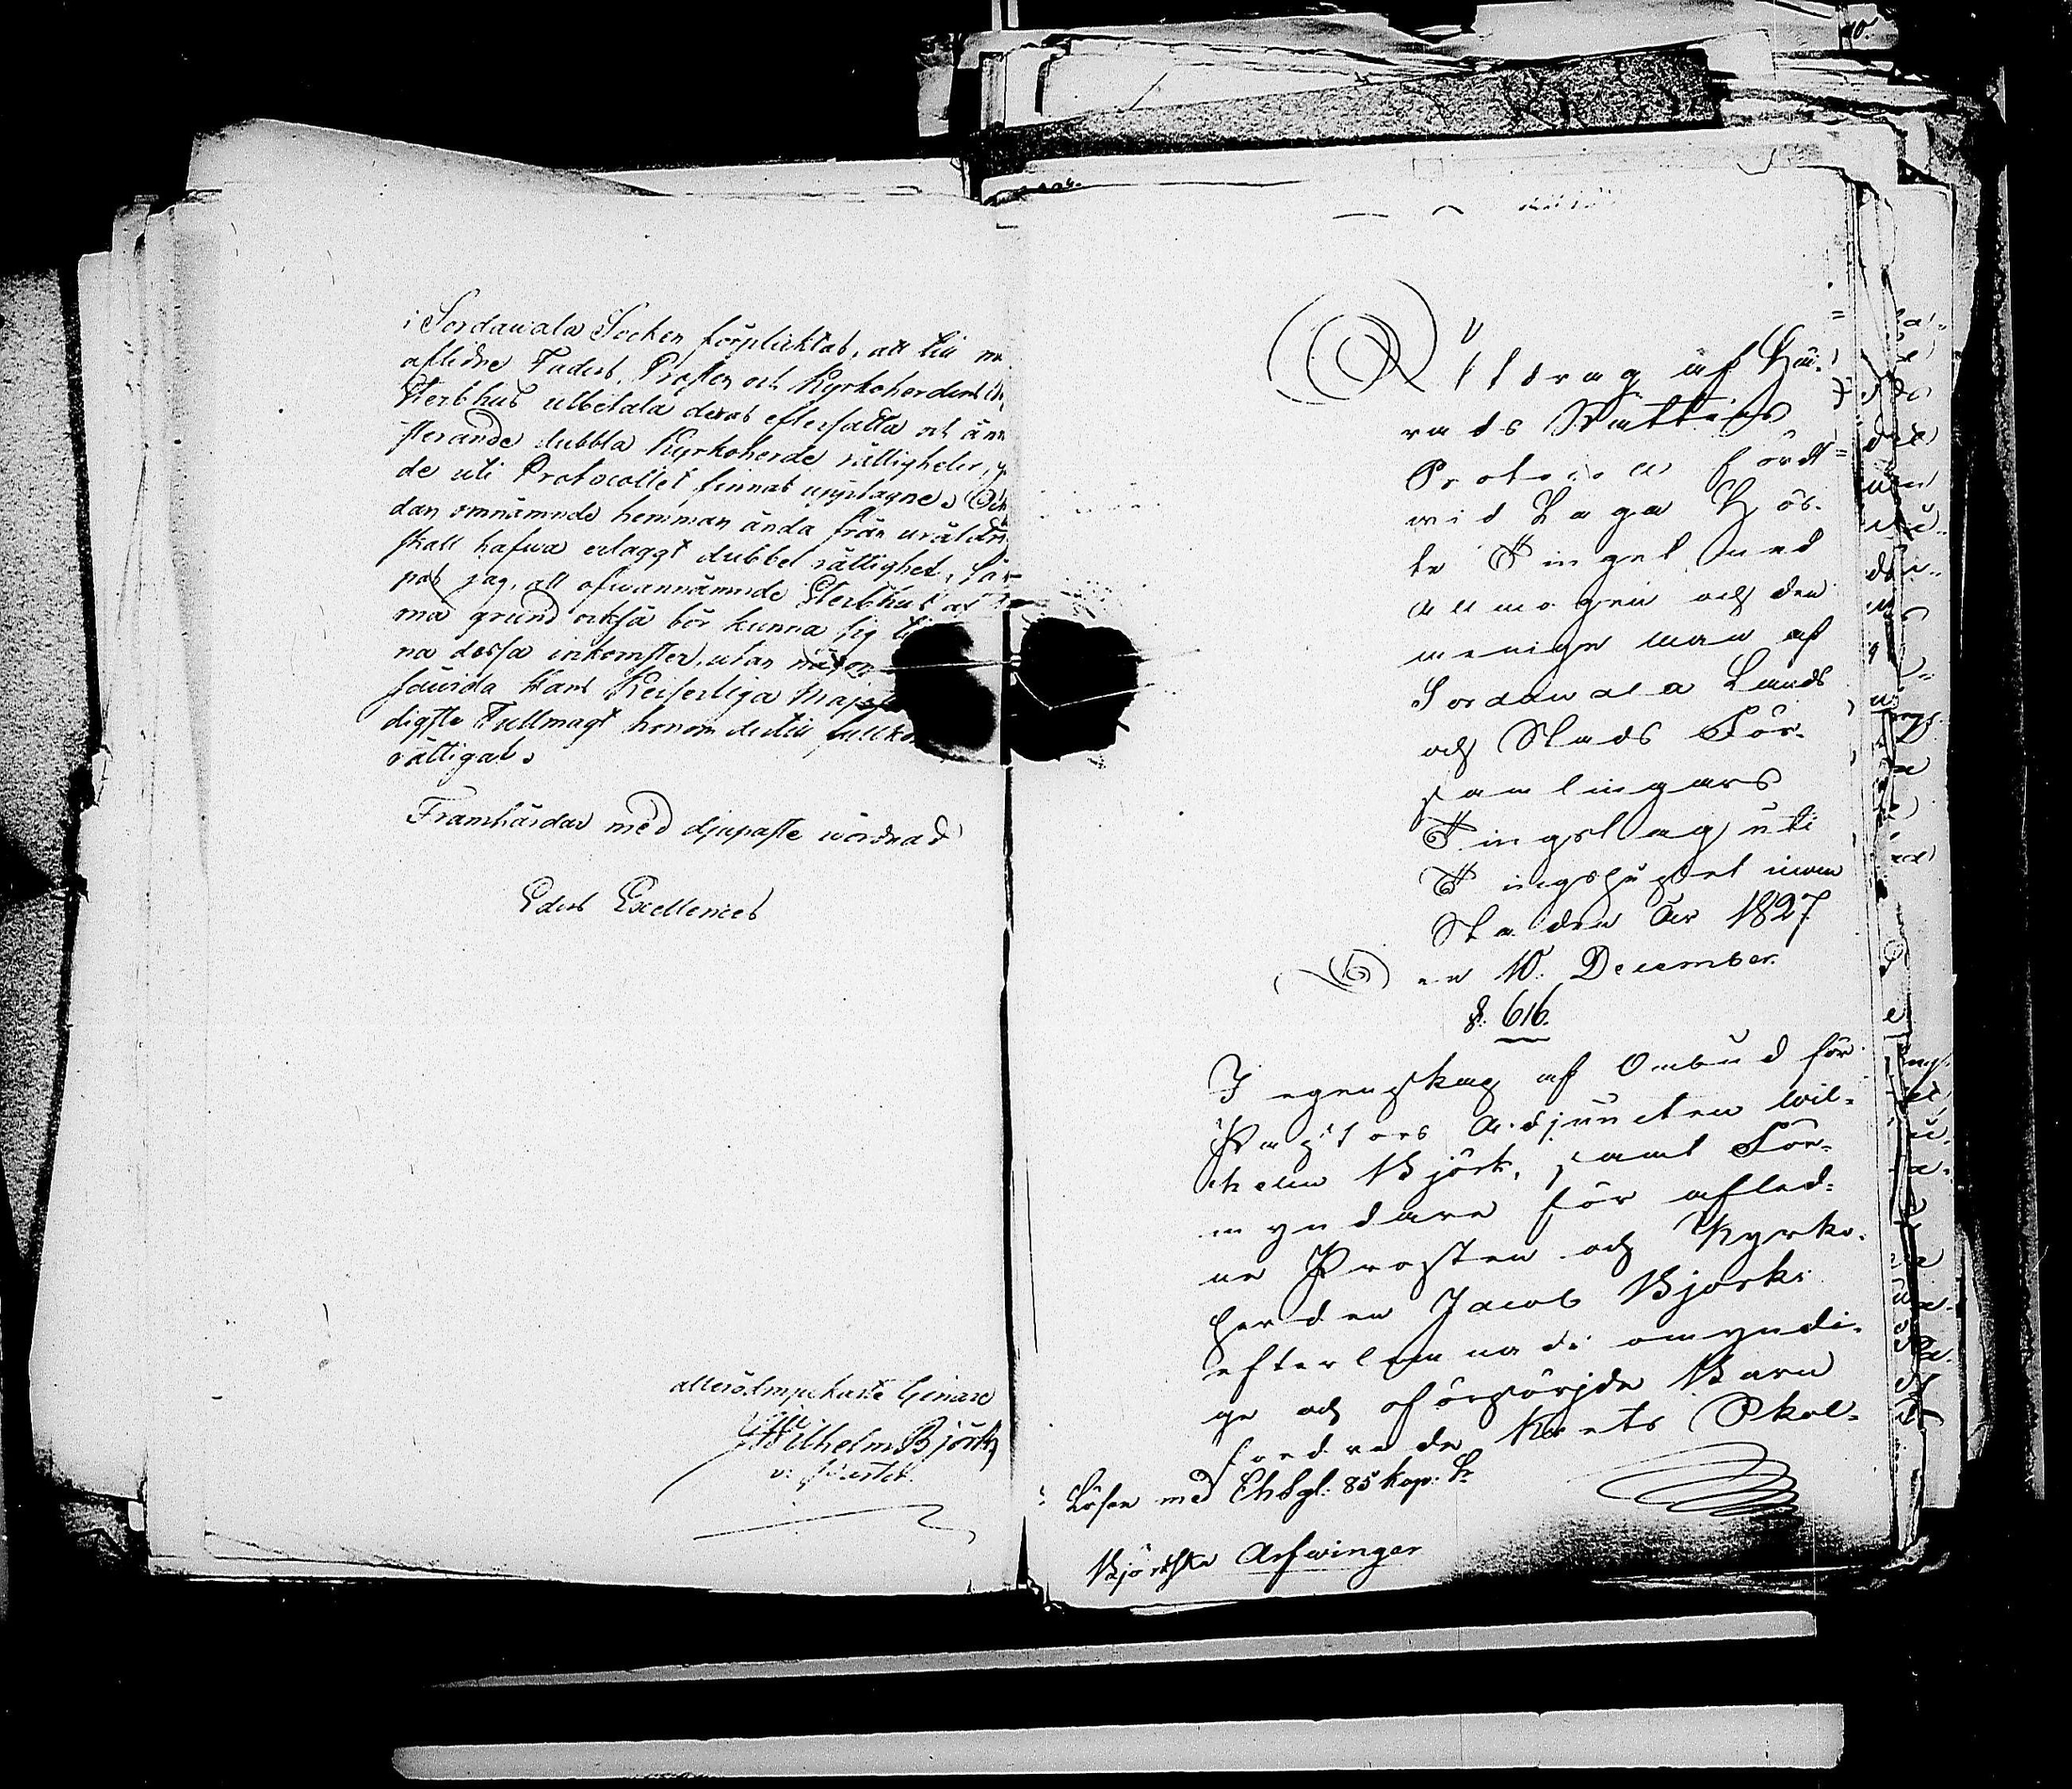 i Sordawala Socken förpliktas, att till m
aflidne Faders, Prosten och Kyrkoherdens
Sterbhus utbetala deras eftersatta och än
sterande dubbla Kyrkoherde rättigheter,
de uti Protocollet finnas upptagne. Och
dan omnämnde hemman ända från uråldri
skall hafwa erlaggt dubbel rättighet, för
pas jag, att ofwannämnde Sterbhus af
ma grund också bör kunna sig
na dessa inkomster, utan någon
såwida Hans Keiserliga Maj
digste Fullmagt honom dertill fullko
rättigat.
Framhärdar med djupaste wördnad
Eders Excellences
allerödmjukaste tjenare
Wilhelm Björk
Utdrag af Hä-
rads Rättens
Protocoll fördt
wid Laga Hös-
te Tinget med
Allmogen och den
menige man af
Sordawala Lands
och Stads För-
samlingars
Tingslag uti
Tingshuset inom
Staden År 1827
den 10. December.
§. 616.
I egenskap af Ombud för
Pastors Adjuncten Wil-
helm Björk, samt För-
myndare för afled-
ne Prosten och Kyrko-
herden Jacob Bjorks
efterlemnade omyndi-
ge och oförsörjde Barn
fordrade Skol-
Lösen med 85 kop. Sr
Björkske Arfwingar